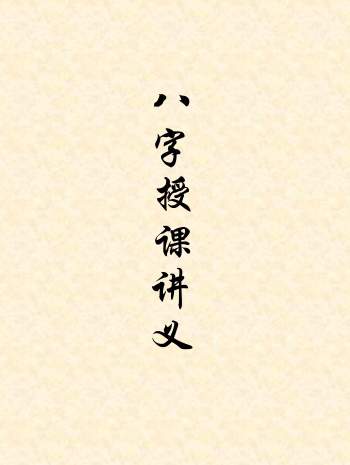 八字授课讲义